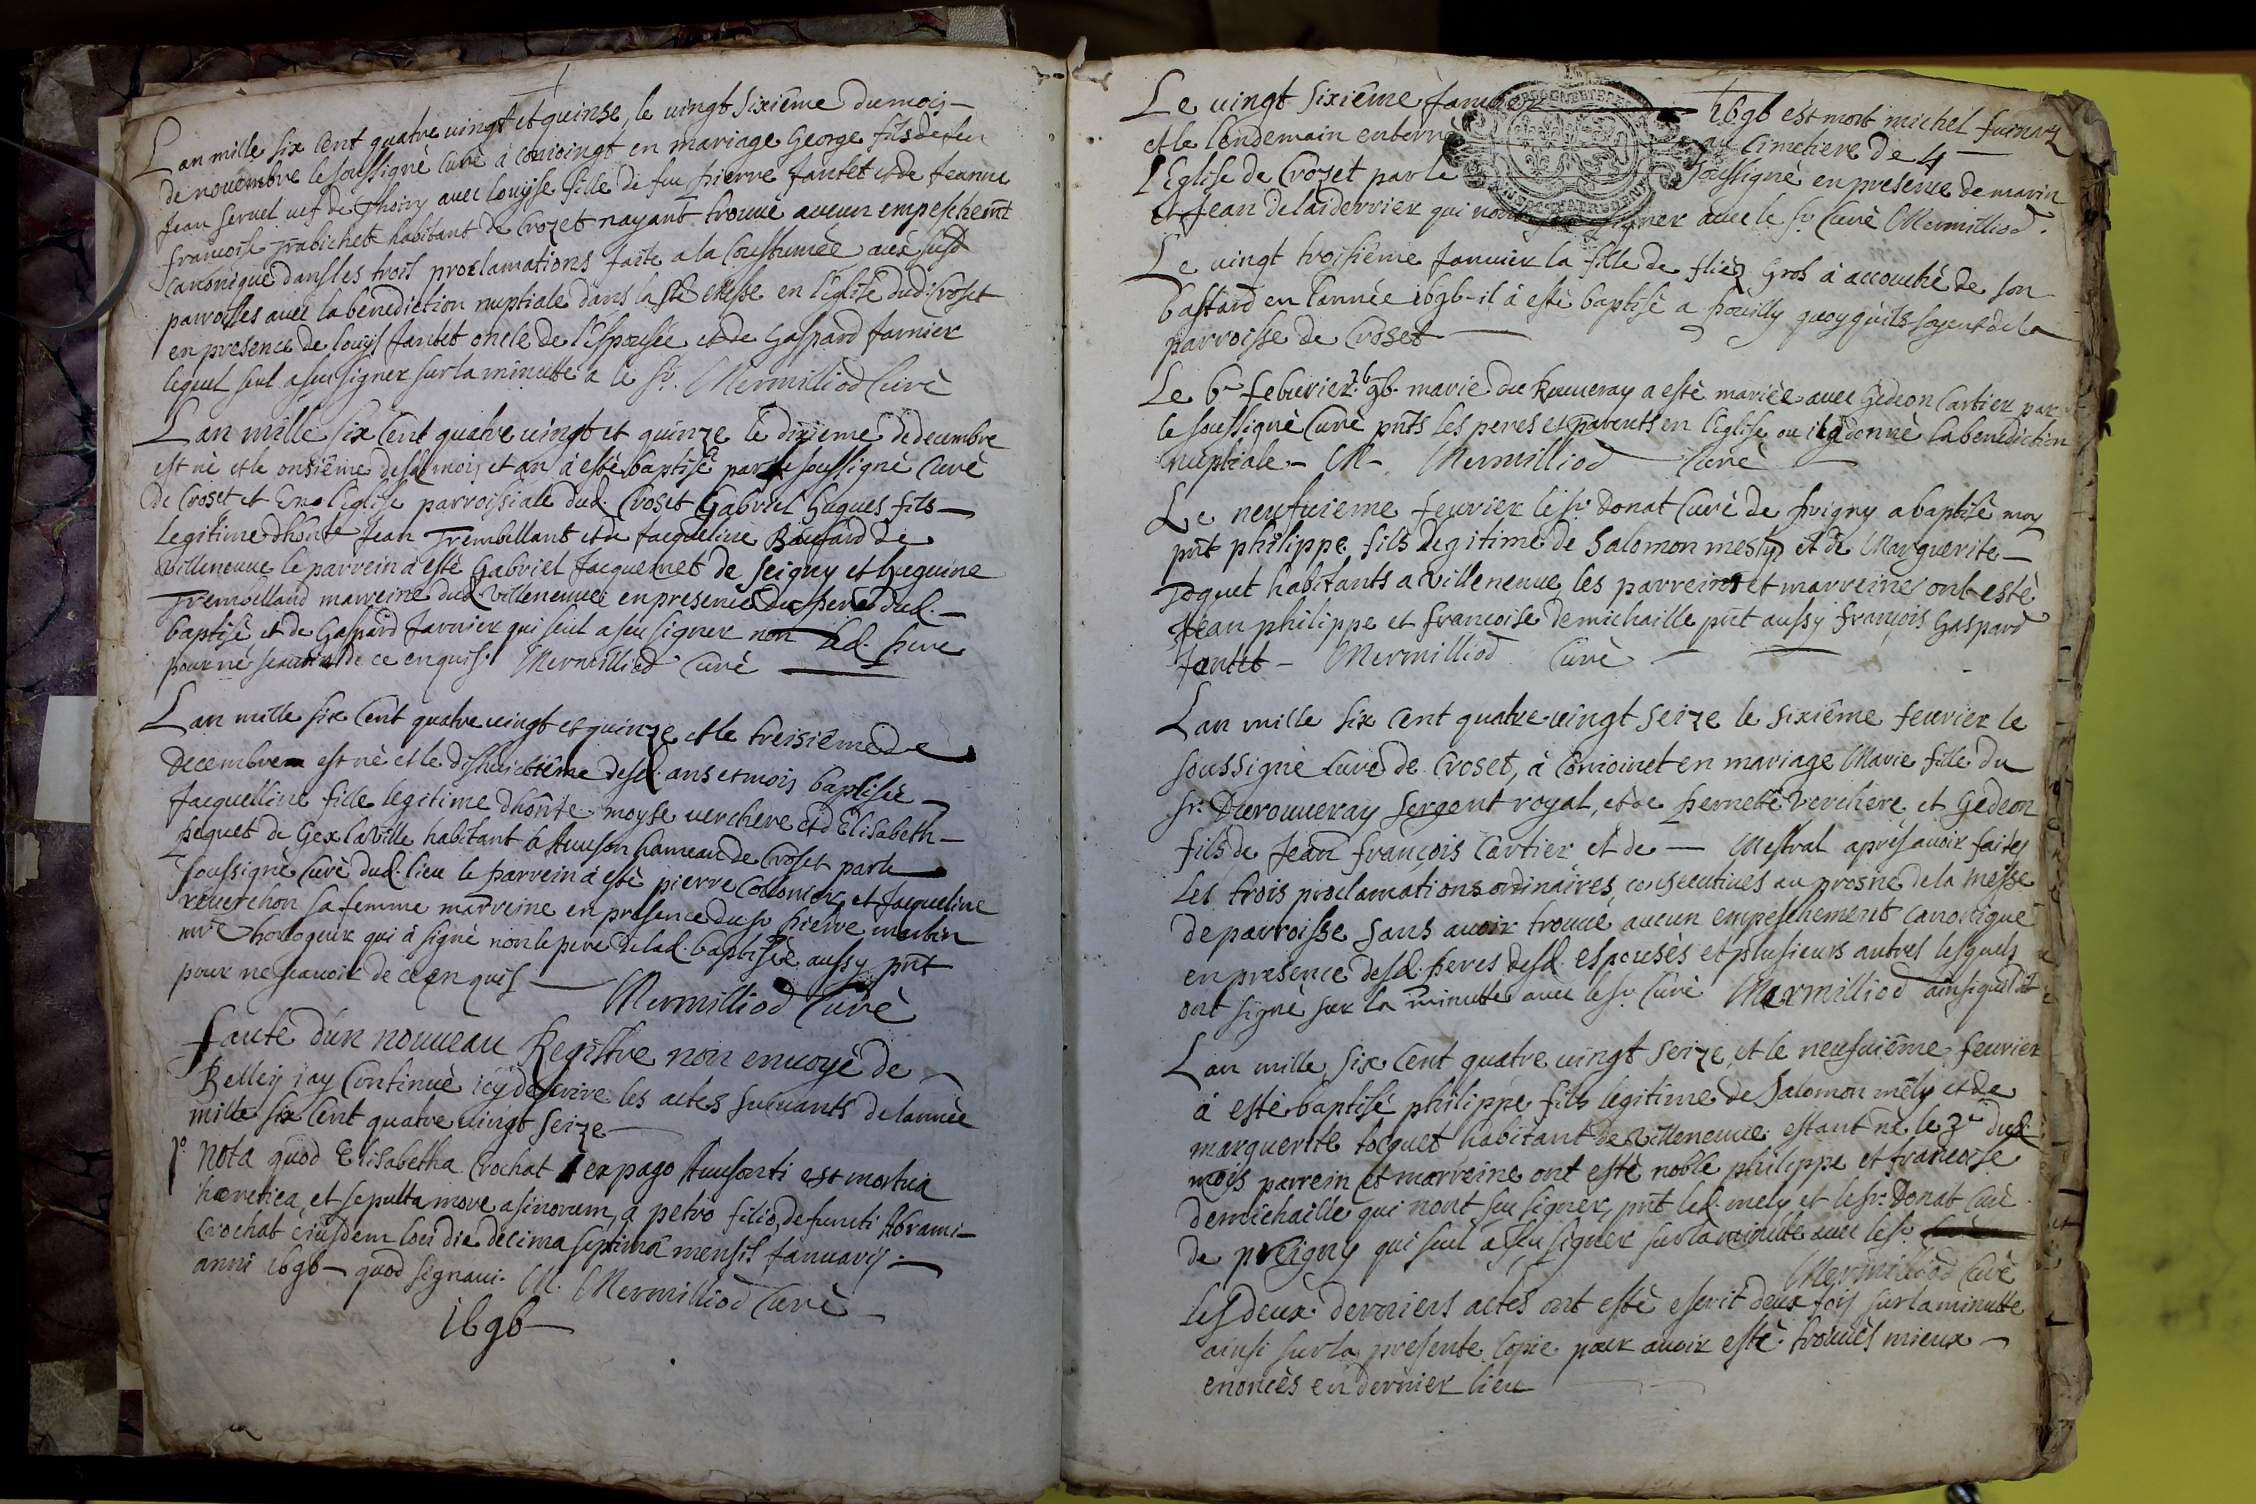 Lan mille six Cent quatre vingt et quinse, le vingt sixiême du mois
de nouembre le soussigné Curé à conioingt en mariage George fils de feu
Jean Seruel uef de Thoiry auec Louyse fille de feu pierre Jantet et de Jeanne
francoise habitant de Crozet nayant trouué aucun empeschemt
Canonique dans les trois proclamations faite a la Coustumée aux susd
parroisses auec la benediction nuptiale dans la Ste Messe en l'église dud Croset
en presence de louys Jantet oncle de l'Espousée et de Gaspard Jarnier
lequel seul a seu signer sur la minutte a le sr. Mermilliod Curé
Lan mille six Cent quatre vingt et quinze le dixieme de decembre
est né et le onsiême desd mois et an à esté baptisé par le soussigné Curé
de Croset et En l'Eglise parroissiale dud. Croset Gabriel hugues fils
legitime dhonte Jean Trembellant et de Jacqueline de
Villeneuue le parrein a esté Gabriel Jacquemet de Seigny et huguine
Trembelland marreine dud Villeneuue en presence du pere dud.
baptisé et de Gaspard Jarnier qui seul a seu signer non led. pere
pour ne seauoir de ce enquis. Mermilliod Curé
Lan mille six Cent quatre vingt et quinze et le treisiême de
Decembre est né et le dishuictiême desd. ans et mois baptisée
Jacquelline fille legitime dhônte moyse verchere et d Elisabeth
pequet de Gex la Ville habitant a Auuson hameau de Croset par le
soussigné Curé dud. lieu le parrein à esté pierre et Jacqueline
reuerchon sa femme marreine en presence du sr pierre martin
mre horlogeur qui à signé non le pere de lad. baptisée aussy pnt
pour ne scauoir de ce enquis
Mermilliod Curé
faute d'un nouueau Registre non enuoyé de
Belley jay Continué icy descrire les actes suiuants de lannée
mille six Cent quatre vingt seize
1° Nota quod Elisabetha Crochat ex pago Auusonti est mortua
hæretica, et sepulta more asinorum, a petro filio defuncti Abrami
Crochat ejusdem loci die decima septima mensis Januarij
anni 1696 quod signaui. M. Mermilliod Curé
1696
Le vingt sixiême Januier 1696 est mort michel
et le lendemain enterré au Cimetiere de
l'Eglise de Crozet par le soussigné en presence de marin
et Jean delaiderrier qui nont signer auec le sr Curé Mermilliod.
Le vingt troisiême Januier la fille de Gros à accouché de son
bastard en l'année 1696 il à esté baptisé a pouilly quoy quils soyent de la
parroisse de Croset
Le 6e feburier 1696. marie du Rouueray a esté mariée auec Gedeon Cartier par
le soussigné Curé pnts les peres et parents en l'Eglise ou il a donné la benediction
nuptiale M. Mermilliod Curé
Le neufuieme feurier le sr Donat Curé de preigny a baptisé moy
pnt philippe fils legitime de Salomon mesly et de Marguerite
Toquet habitants a Villeneuue, les parreins et marreine ont esté
Jean philippe et francoise demichaille pnt aussy françois Gaspard
Jantet Mermilliod Curé
Lan mille six Cent quatre vingt seize le sixiême feurier le
soussigné Curé de Croset, à conioinct en mariage Marie fille du
sr. Durouueray sergent royal, et de pernete Verchere, et Gedeon
fils de Jean françois Cartier et de Mestral apres auoir faites
les trois proclamations ordinaires, consecutiues au prosne de la messe
de parroisse sans auoir trouué aucun empeschement canonique
en presence desd. peres desd. espousés et plusieurs autres lesquels
ont signé sur la minutte auec le sr Curé Mermilliod ainsi quil dit
Lan mille six Cent quatre vingt seize, et le neufuiême feurier
à esté baptisé philippe fils legitime de Salomon mêly et de
marguerite toquet habitant de Villeneuue estant né le 3e dud
mois parrein et marreine ont esté noble philippe et francoise
demichaille qui nont seu signer, pnt led. mely et le sr. Donat Curé
de preigny qui seul à seu signer sur la minutte auec le sr
Mermilliod Curé
les deux derniers actes ont esté escrit deux fois sur la minutte
ainsi sur la presente Copie pour auoir esté trouués mieux
enoncés en dernier lieu